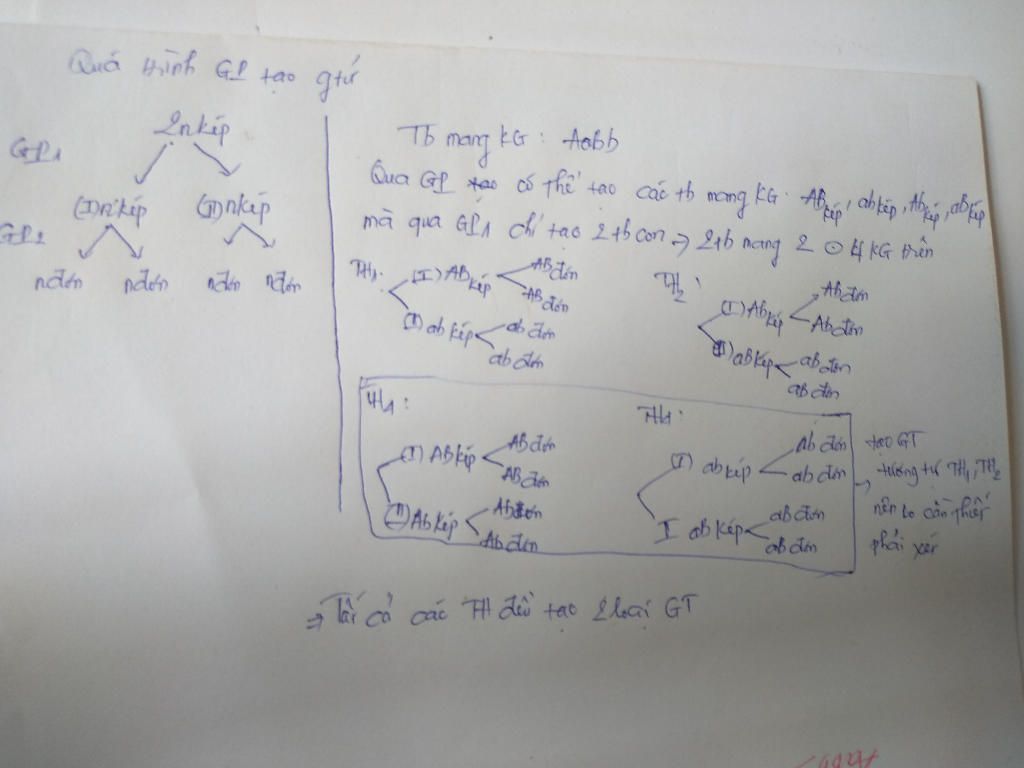 Quá trình GP tạo gtử
GP1
2n kép
(I) n kép (II) n kép
GP2
n đơn n đơn n đơn n đơn
Tb mang KG: AaBb
Qua GP tạo có thể tạo các tb mang KG: AB kép, ab kép, Ab kép, aB kép
mà qua GP1 chỉ tạo 2 tb con → 2 tb mang 2 trên
TH1:
(I) AB kép AB đơn AB đơn
(II) ab kép ab đơn ab đơn
TH2:
(I) Ab kép Ab đơn Ab đơn
(II) aB kép aB đơn aB đơn
(I) AB kép AB đơn AB đơn
(II) Ab kép Ab đơn Ab đơn
(I) ab kép ab đơn ab đơn
I aB kép aB đơn aB đơn
→ tạo GT
tương tự TH1, TH2
nên ko cần thiết
phải xét
⇒ Tất cả các TH đều tạo 2 loại GT